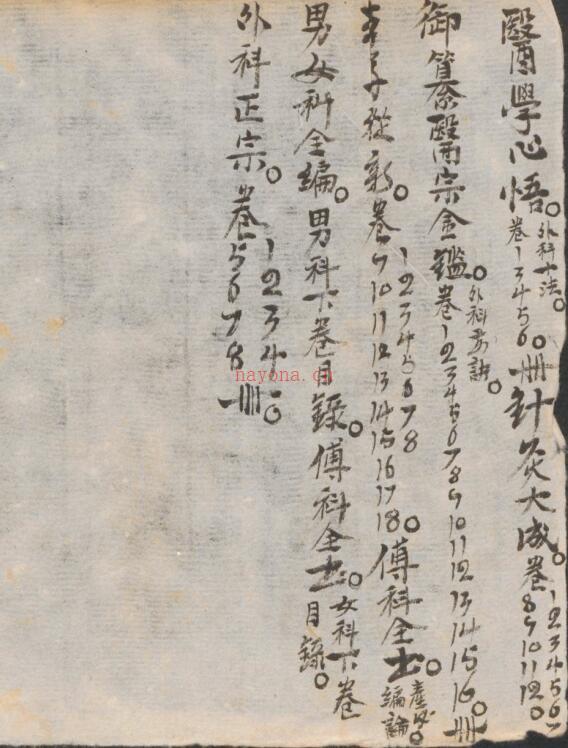 醫學心悟。外科十法。卷1 3 4 5 6。冊針灸大成。卷1 2 3 4 5 6 7 8 9 10 11 12。
御篡醫宗金鑑。外科要訣。卷1 2 3 4 5 6 7 8 9 10 11 12 13 14 15 16。冊
本子從新。卷1 2 3 4 5 6 7 8 9 10 11 12 13 14 15 16 17 18。傅科全士。產後編論。
男女科全編。男科下卷目錄。傅科全士。女科下卷目錄。
外科正宗。卷1 2 3 4 5 6 7 8。冊。
nayona.cn